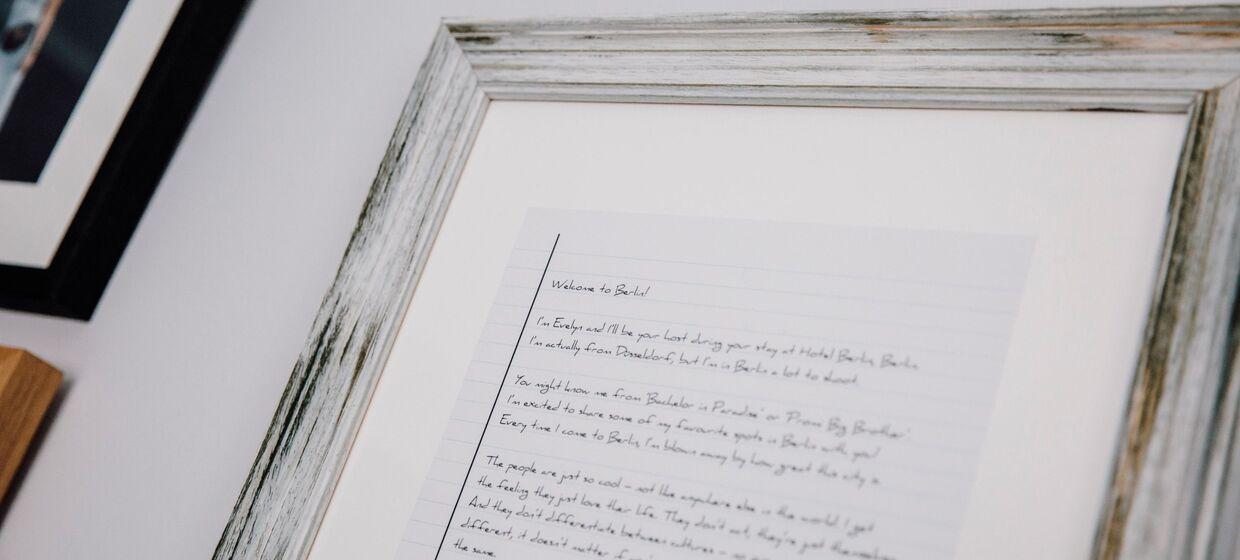 Welcome to Berlin!
I'm Evelyn and I'll be your host during your stay at Hotel Berlin, Berlin.
I'm actually from Düsseldorf, but I'm in Berlin a lot to shoot.
You might know me from 'Bachelor in Paradise' or 'Promi Big Brother'.
I'm excited to share some of my favourite spots in Berlin with you!
Every time I come to Berlin, I'm blown away by how great this city is.
The people are just so cool – not like anywhere else in the world. I get
the feeling they just love their life. They don't act, they're just themselves.
And they don't differentiate between cultures – no
different, it doesn't matter if
the same.